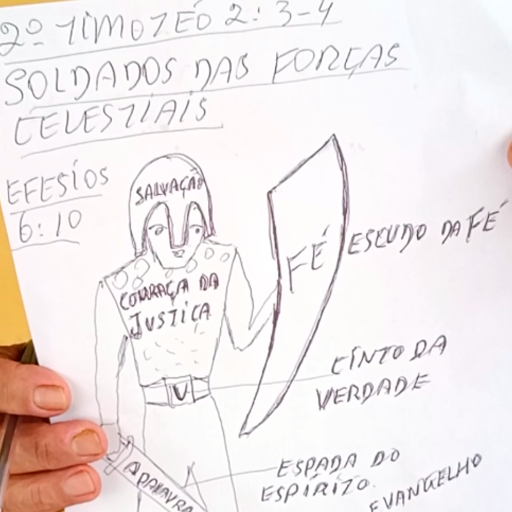 2º TIMOTEÓ 2: 3-4
SOLDADOS DAS FORÇAS
CELESTIAIS
EFESÍOS
6:10
SALVAÇÃO
COURAÇA DA
JUSTIÇA
FÉ
ESCUDO DA FÉ
V
CÍNTO DA
VERDADE
ESPADA DO
ESPÍRITO
A PALAVRA
EVANGELHO